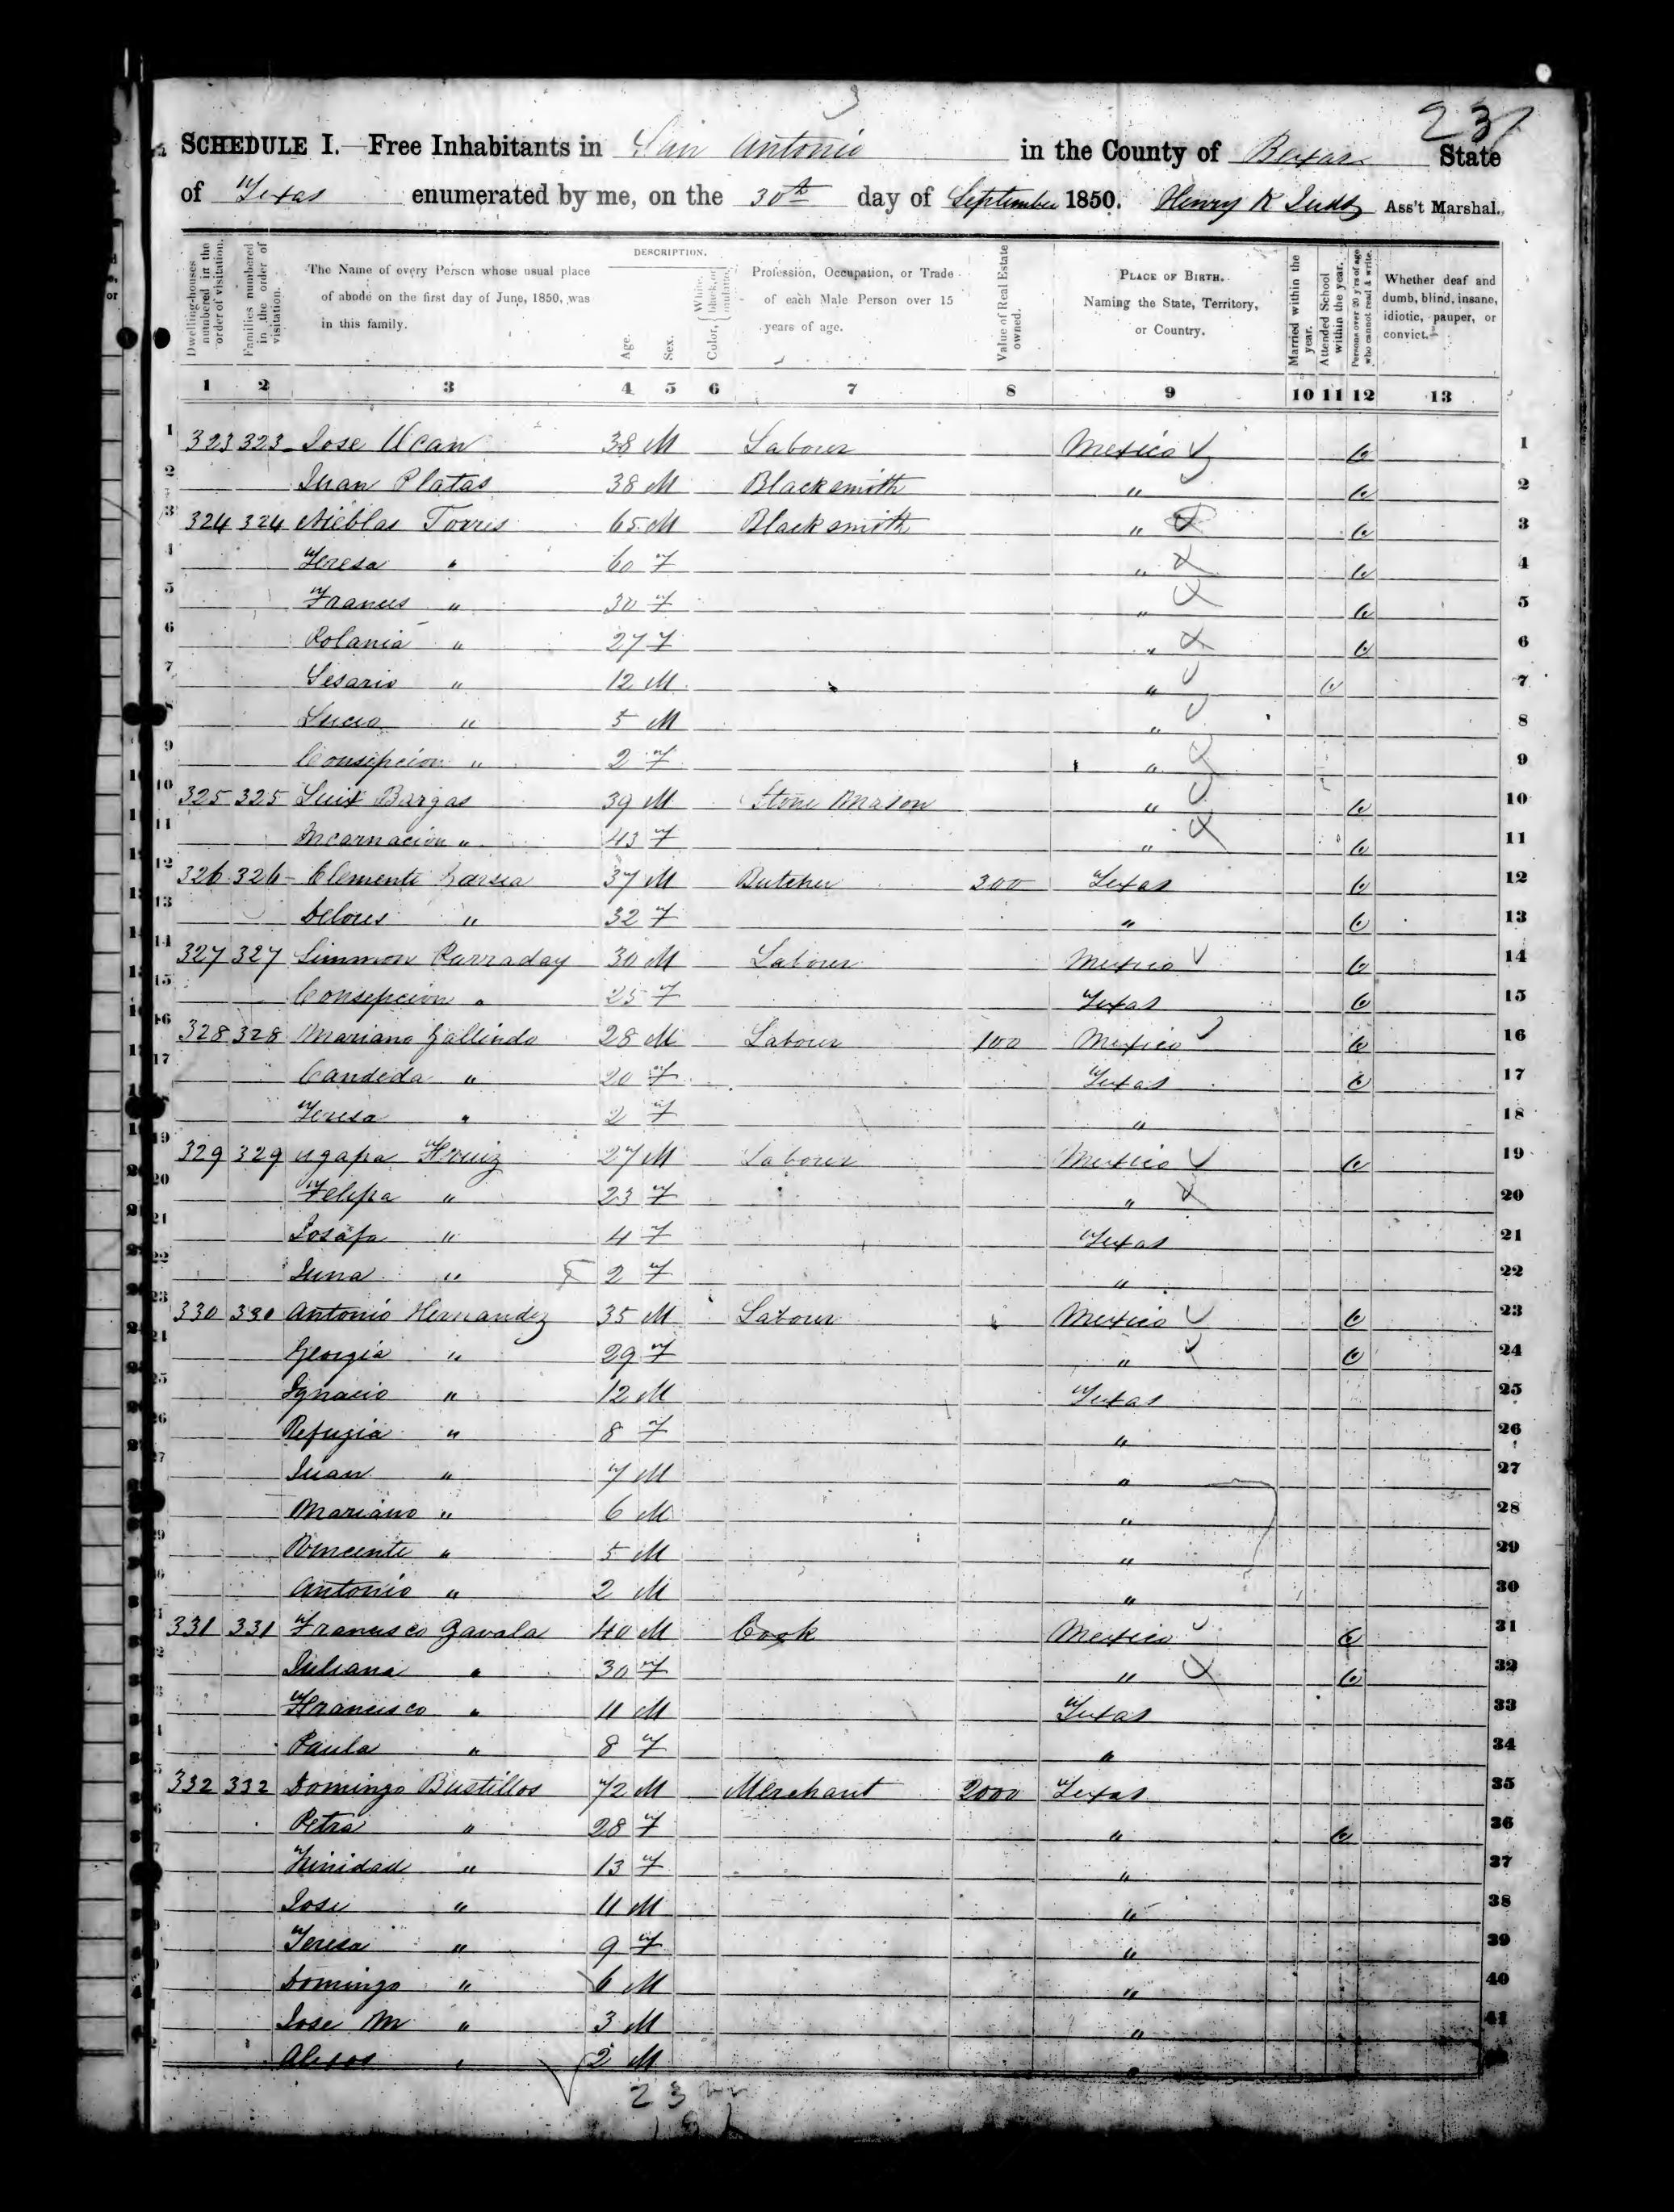 237
SCHEDULE I. Free Inhabitants in San Antonio in the County of Bexar State
of Texas enumerated by me, on the 30th day of September 1850. Henry K Judd Ass't Marshal.
Dwelling-houses numbered in the order of visitation.
Families numbered in the order of visitation.
The Name of every Person whose usual place of abode on the first day of June, 1850, was in this family.
DESCRIPTION.
Age.
Sex.
Color, White, black, or mulatto.
Profession, Occupation, or Trade of each Male Person over 15 years of age.
Value of Real Estate owned.
PLACE OF BIRTH. Naming the State, Territory, or Country.
Married within the year.
Attended School within the year.
Persons over 20 y'rs of age who cannot read & write.
Whether deaf and dumb, blind, insane, idiotic, pauper, or convict.
1 2 3 4 5 6 7 8 9 10 11 12 13
1 323 323 Jose Ucan 38 M Labour Mexico 1
2 Juan Platas 38 M Blacksmith " 2
3 324 324 Nieblas Torres 65 M Blacksmith " 3
4 Teresa " 60 F " 4
5 Frances " 30 F " 5
6 Polania " 27 F " 6
7 Sesario " 12 M " 7
8 Lucio " 5 M " 8
9 Consepcion " 2 F " 9
10 325 325 Luis Bargas 39 M Stone Mason " 10
11 Incarnacion " 43 F " 11
12 326 326 Clemente Garsia 37 M Butcher 300 Texas 12
13 Delores " 32 F " 13
14 327 327 Simmon Parraday 30 M Labour Mexico 14
15 Consepcion " 25 F Texas 15
16 328 328 Mariano Gallindo 28 M Labour 100 Mexico 16
17 Candeda " 20 F Texas 17
18 Teresa " 2 F " 18
19 329 329 Agapa 27 M Labour Mexico 19
20 Felipa " 23 F " 20
21 Josafa " 4 F Texas 21
22 Juna " 2 F " 22
23 330 330 Antonio Hernandez 35 M Labour Mexico 23
24 Georgia " 29 F " 24
25 Ignacio " 12 M Texas 25
26 Refugia " 8 F " 26
27 Juan " 7 M " 27
28 Mariano " 6 M " 28
29 " 5 M " 29
30 Antonio " 2 M " 30
31 331 331 Francisco Zavala 40 M Cook Mexico 31
32 Juliana " 30 F " 32
33 Francisco " 11 M Texas 33
34 Paula " 8 F " 34
35 332 332 Domingo Bustillos 72 M Merchant 2000 Texas 35
36 Petra " 28 F " 36
37 Trinidad " 13 F " 37
38 Jose " 11 M " 38
39 Teresa " 9 F " 39
40 Domingo " 6 M " 40
41 Jose M " 3 M " 41
" 2 M "
23